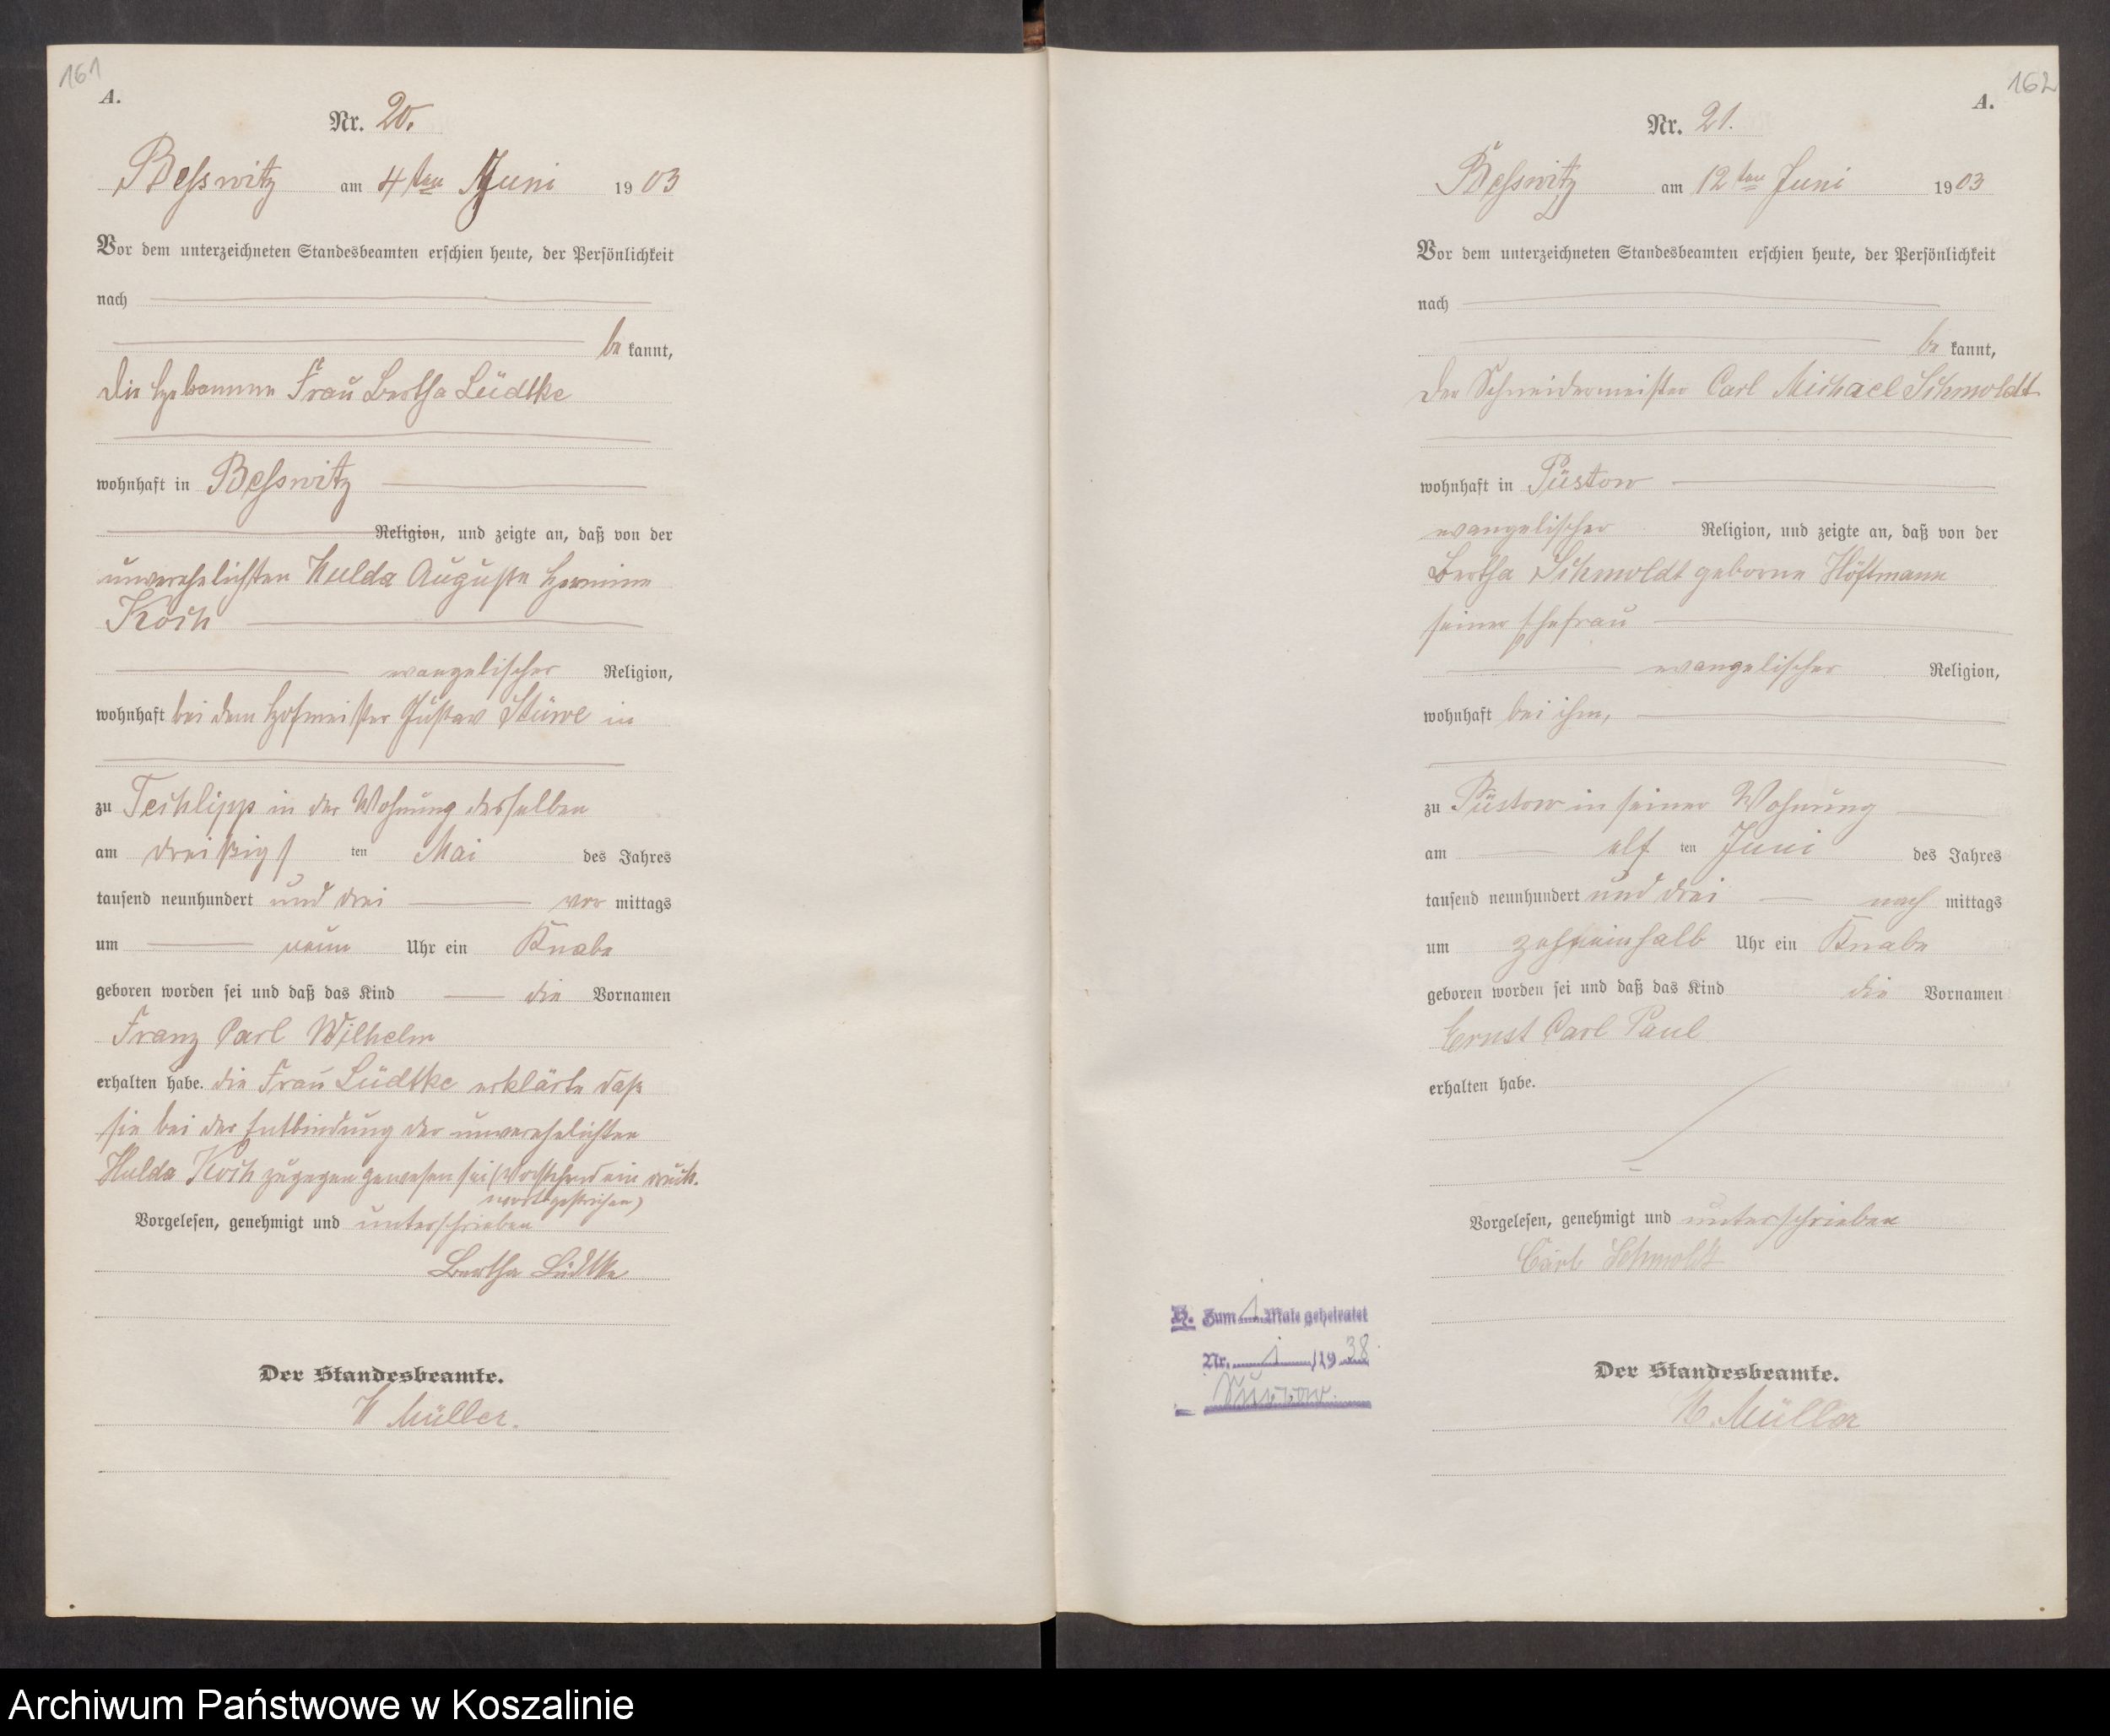 161
A.
Nr. 20.
Besswitz am 4ten Juni 1903
Vor dem unterzeichneten Standesbeamten erschien heute, der Persönlichkeit
nach
be kannt,
die Hebamme Frau Bertha Lüdtke
wohnhaft in Besswitz
Religion, und zeigte an, daß von der
unverehelichten Hulda Auguste Hermine
Koch
evangelischer Religion,
wohnhaft bei dem Hofmeister Gustav Stüwe in
zu Techlipp in der Wohnung desselben
am dreißigsten Mai des Jahres
tausend neunhundert und drei vor mittags
um neun Uhr ein Knabe
geboren worden sei und daß das Kind die Vornamen
Franz Carl Wilhelm
erhalten habe. die Frau Lüdtke erklärte daß
sie bei der Entbindung der unverehelichten
Hulda Koch zugegen gewesen sei (Vorstehend ein Druck-
wort gestrichen)
Vorgelesen, genehmigt und unterschrieben
Bertha Lüdtke
Der Standesbeamte.
Müller.
162
A.
Nr. 21.
Besswitz am 12ten Juni 1903
Vor dem unterzeichneten Standesbeamten erschien heute, der Persönlichkeit
nach
be kannt,
der Schneidermeister Carl Michael Schmoldt
wohnhaft in Püstow
evangelischer Religion, und zeigte an, daß von der
Bertha Schmoldt geborne Höftmann
seiner Ehefrau
evangelischer Religion,
wohnhaft bei ihm,
zu Püstow in seiner Wohnung
am elf ten Juni des Jahres
tausend neunhundert und drei nach mittags
um zehneinhalb Uhr ein Knabe
geboren worden sei und daß das Kind die Vornamen
Ernst Carl Paul
erhalten habe.
Vorgelesen, genehmigt und unterschrieben
Carl Schmoldt
H. Zum 1 Male geheiratet
Nr. 1/1938.
Der Standesbeamte.
Müller
Archiwum Państwowe w Koszalinie